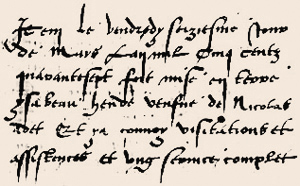 Item le vendredy seiziesme jour
de Mars l'an mil cinq centz
quarantesept fut mise en terre
ysabeau veufve de Nicolas
Et y a visitations et
assistences et ung service complet